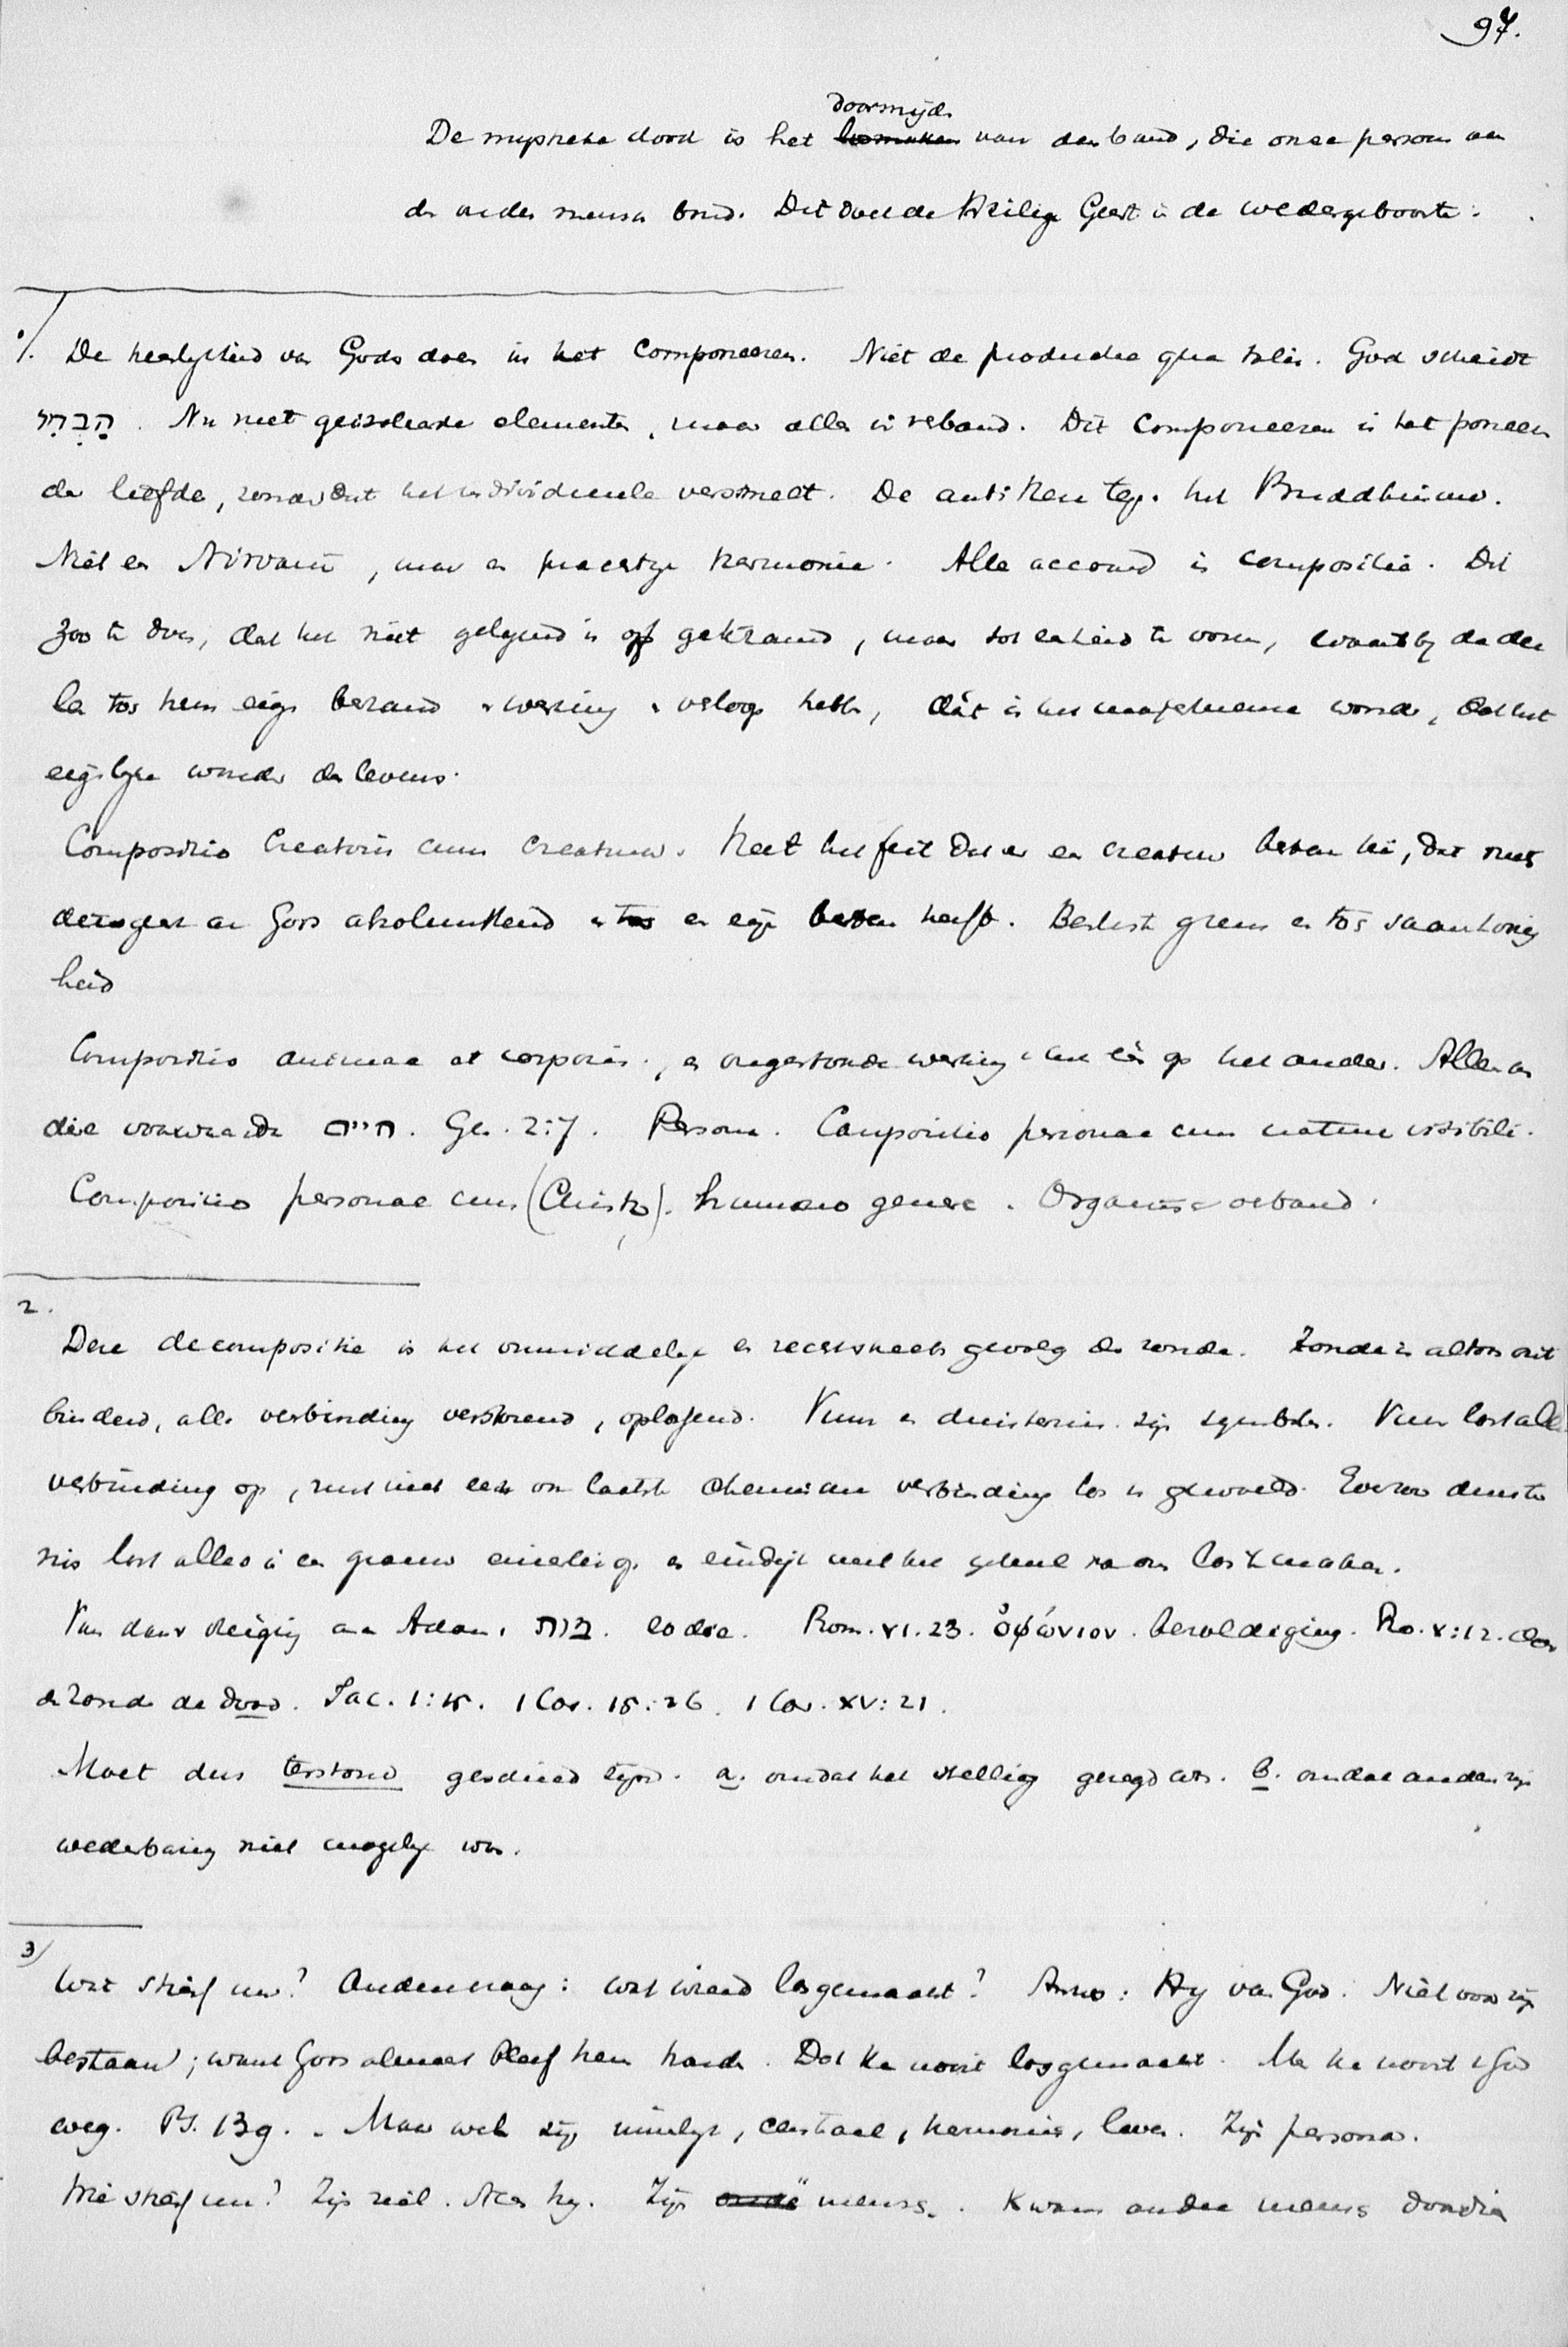 97.
doorsnijd.
De mystieke dood is het losmaken van den band, die onze persoon aan
de ouden mensch bind. Dit doet de Heilige Geest in de wedergeboorte.
1/. De heerlijkheid van Gods doen is het Componeeren. Niet de productie qua talis. God scheidt
הִבְדִּיל. Nu niet geisoleerde elementen, maar alles in verband. Dit Componeeren is het poneeren
der liefde, zonder dat het individueele versmelt. De antithese teg. het Buddhisme.
Niet een Nirvana, maar een prachtige harmonie. Alle accoord is compositie. Dit
zoo te doen, dat het niet gelijmd is of gekramd, maar tot eenheid te worden, waarbij de dee
len toch hun eigen bestand en werking en verloop hebben, dát is het wonder, dat het
eigenlijke wonder des levens.
Compositio Creatoris cum creatura. Reeds het feit dat er een creatuur bestaan kan, dat niets
derogeert aan Gods absoluutheid en toch een eigen bestaan heeft. Besliste grens en toch saamhorig
heid
Compositio animae et corporis, en ongestoorde werking van het één op het ander. Alleen on
die voorwaarde חיים. Gen. 2:7. Persona. Compositio personae cum natura visibili.
Compositio personae cum (Christo). humano genere. Organisch verband.
2.
Deze decompositie is het onmiddelijk en rechtstreeks gevolg der zonde. Zonde is altoos ont
bindend, alle verbinding verstorend, oplossend. Vuur en duisternis zijn symbolen. Vuur lost alle
verbinding op, rust niet eer ook laatste chemische verbinding los is gewoeld. Evenzoo duister
nis lost alles in een grauw eenerlei op en eindigt met het geheel van ons los te maken.
Van daar dreiging aan Adam, מות. eo die. Rom. VI. 23. ὀψώνιον. bezoldiging. Ro. V:12. door
de zonde de dood. Jac. 1:15. 1 Cor. 15:26. 1 Cor. XV:21.
Moet dus terstond geschied zijn. a. omdat het stellig gezegd was. b. omdat anders zijn
wederbaring niet mogelijk was.
3/
Wat stierf nu? Andere vraag: wat wierd losgemaakt? Antw: Hij van God. Niet voor zijn
bestaan; want Gods almacht bleef hem houden. Dat kan nooit losgemaakt. Men kan nooit van God
weg. Ps. 139. Maar wel zijn innerlijk, centraal, harmonie, leven. Zijn persona.
Wie stierf nu? Zijn ziel. Neen hij. Zijn oude mensch. Kwam andere mensch voor die